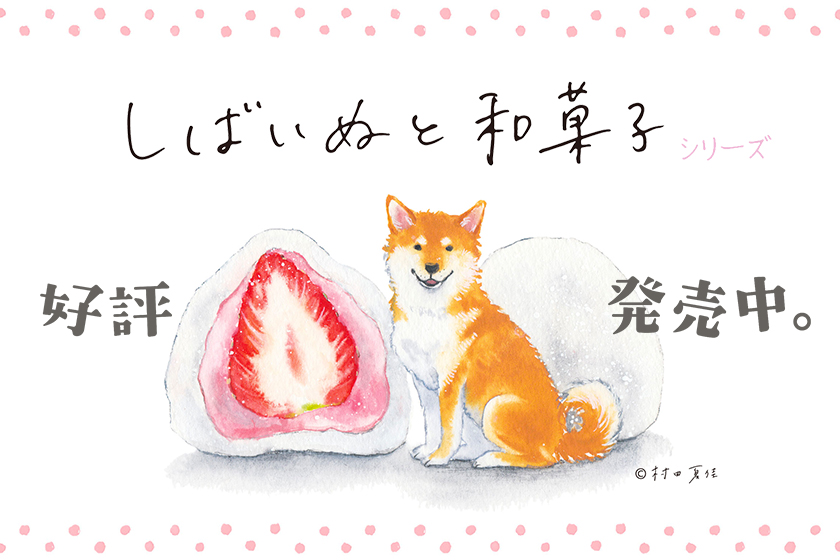 しばいぬと和菓子 シリーズ
好評 発売中。
©村田夏佳